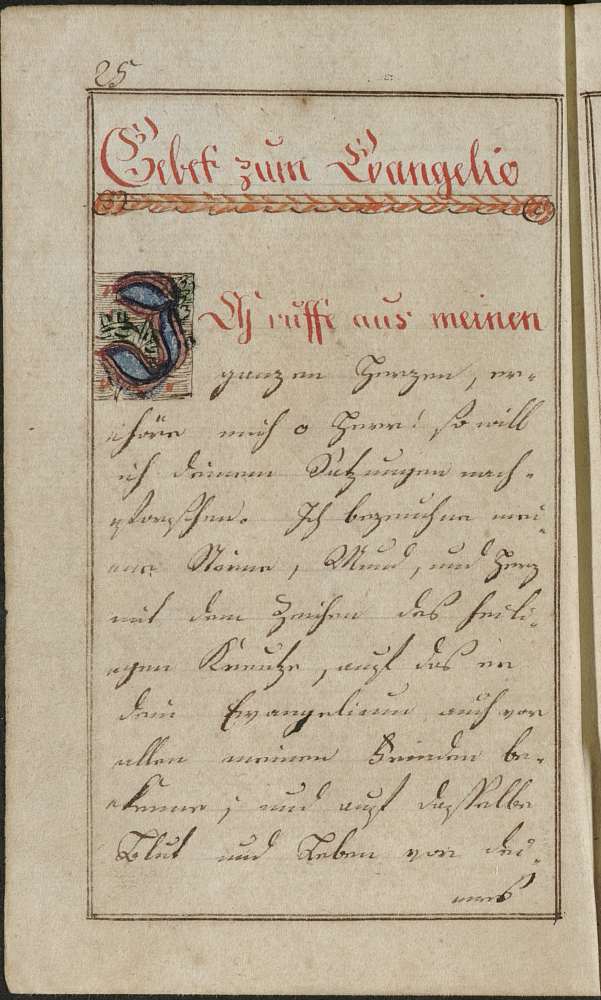 25
Gebett zum Evangelio
ICH ruffe aus meinen
ganzen Herzen, er-
höre mich o Herr! so will
ich deinen Satzungen nach-
forschen. Ich bezeichne mei-
ne Stirne, Mund, und Herz
mit dem Zeichen des heili-
gen Kreutze, auf das
dein Evangelium auch vor
allen meinen Feinden be-
kenne, und auf dasselbe
Blut und Leben vor dei-
nes